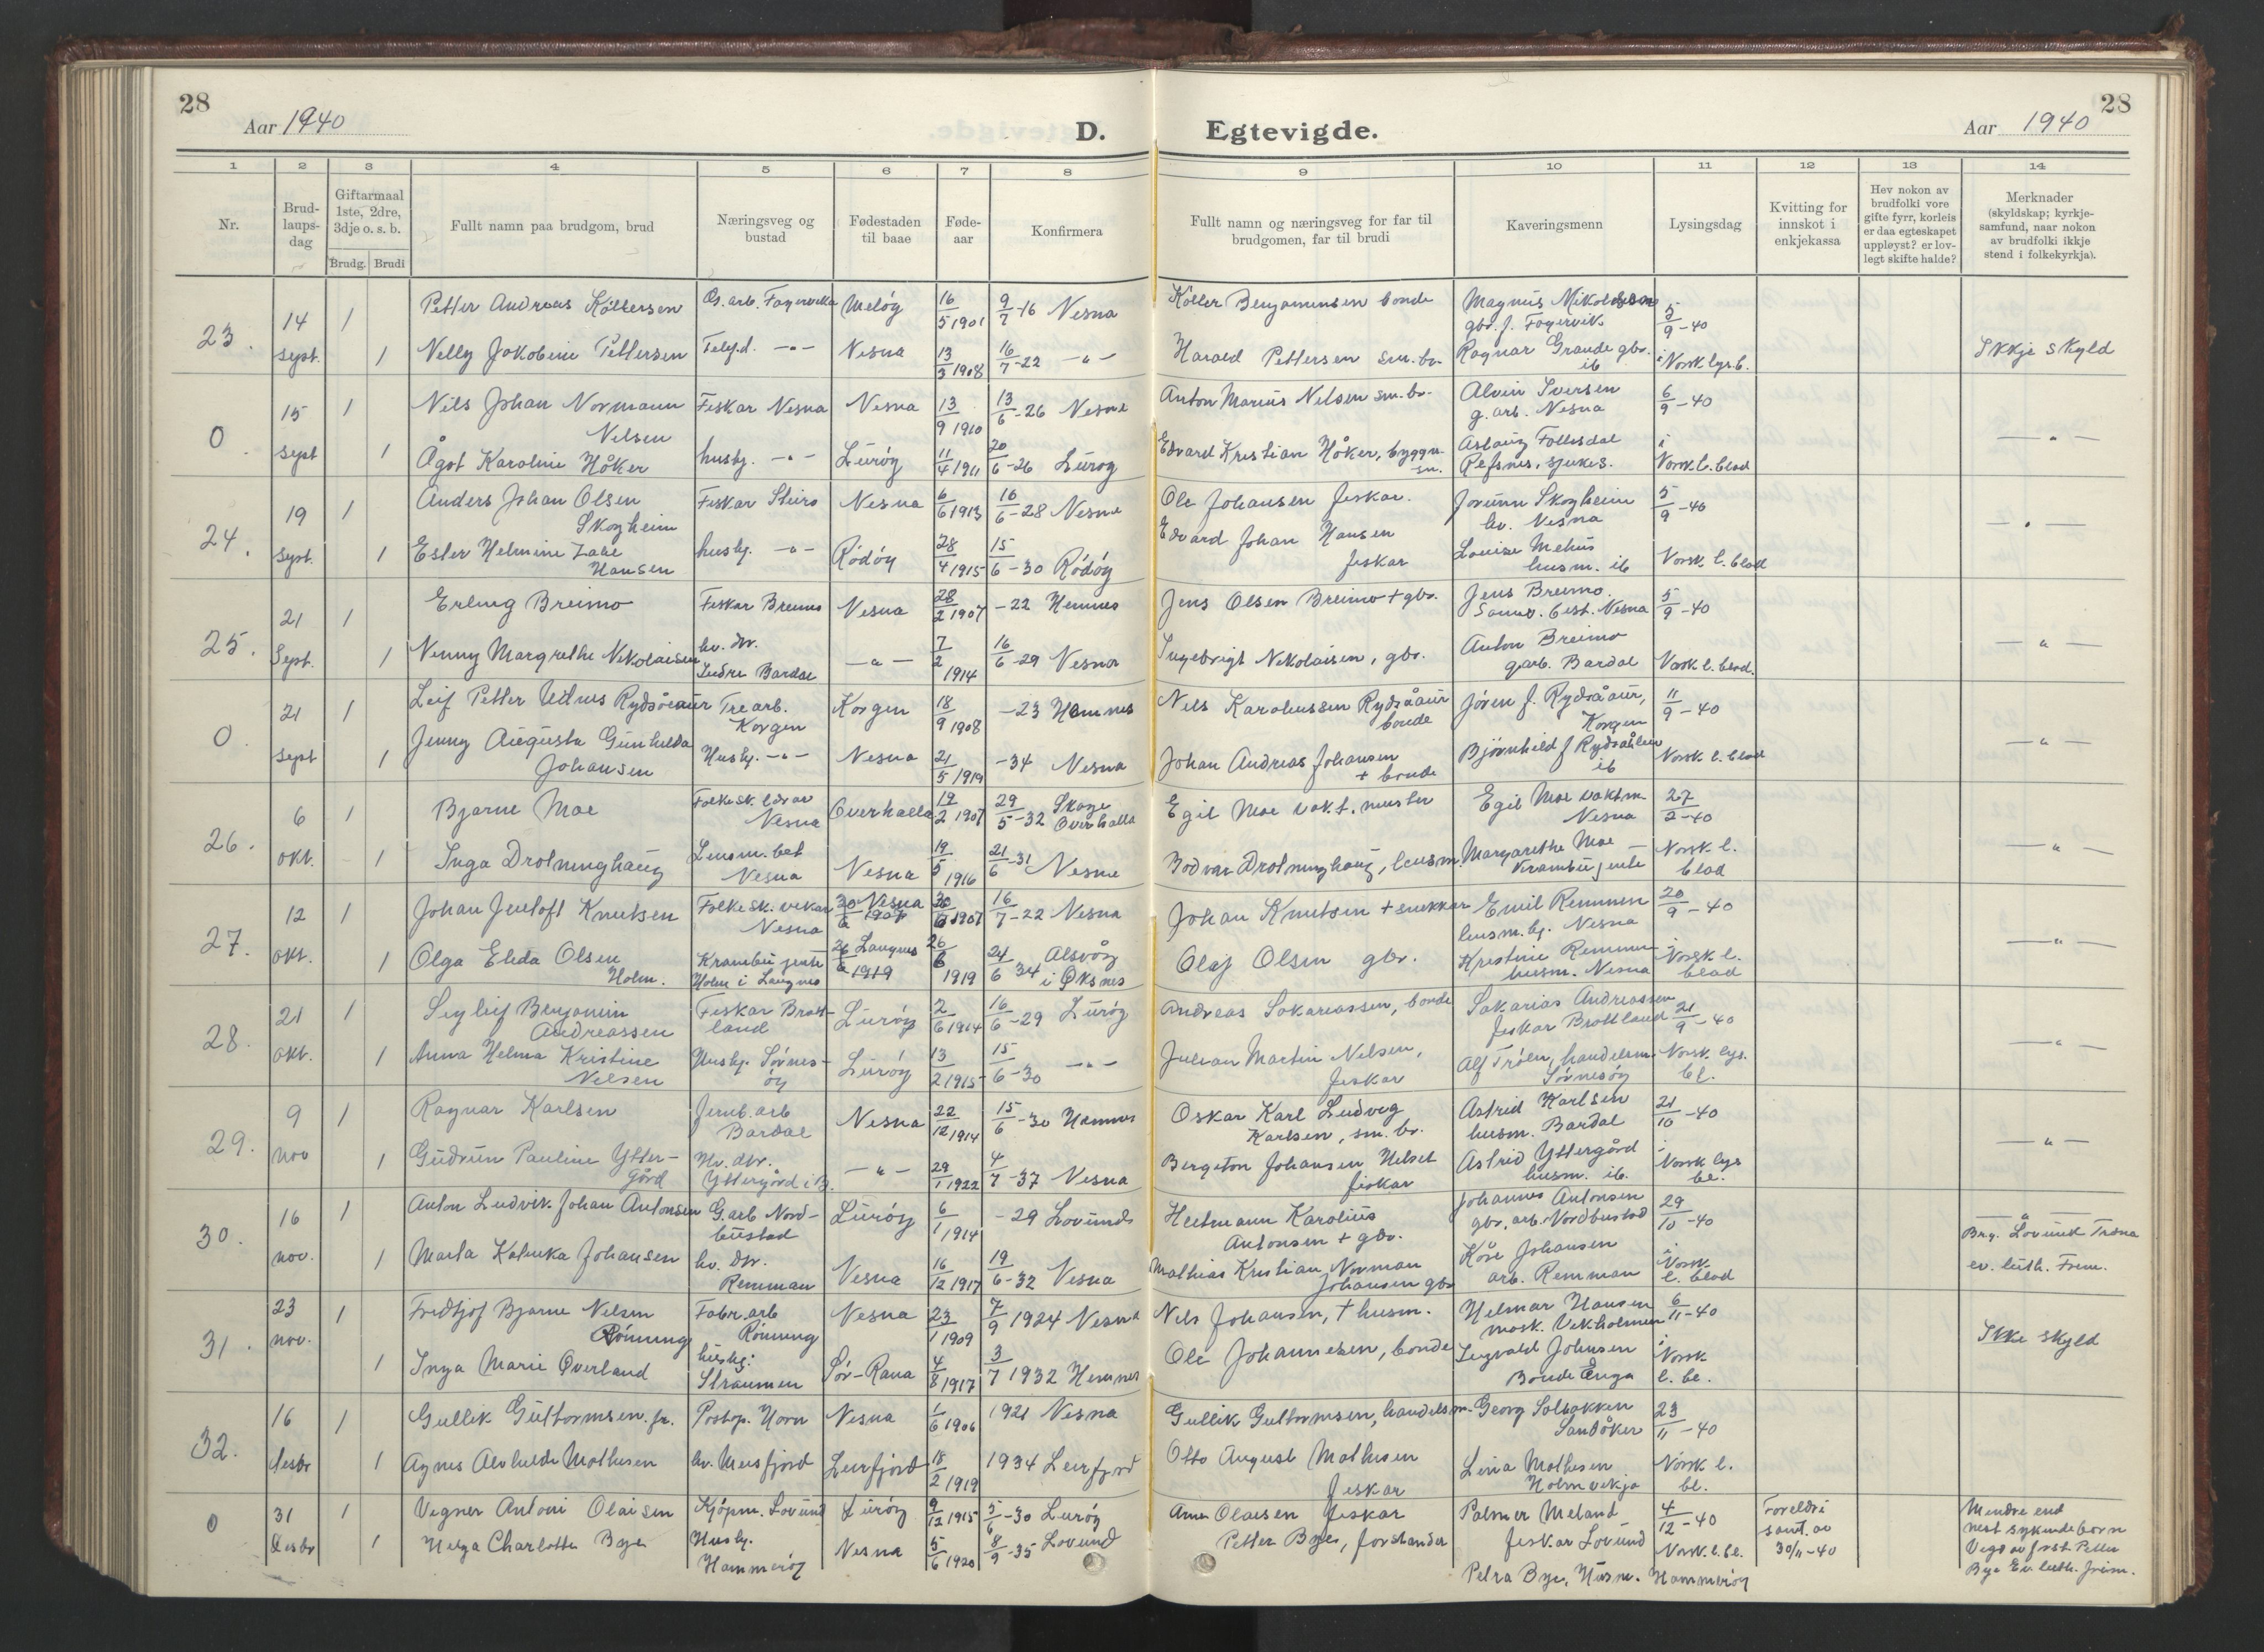 28
Aar 1940
D.
1 2 3 4 5 6 7 8
Nr.
Brud-
laups-
dag
Giftarmaal
1ste, 2dre,
3dje o. s. b.
Brudg. Brudi
Fullt namn paa brudgom, brud
Næringsveg og
bustad
Fødestaden
til baae
Føde-
aar
Konfirmera
28
Egtevigde.
Aar 1940
9 10 11 12 13 14
Fullt namn og næringsveg for far til
brudgomen, far til brudi
Kaveringsmenn
Lysingsdag
Kvitting for
innskot i
enkjekassa
Hev nokon av
brudfolki vore
gifte fyrr, korleis
er daa egteskapet
uppløyst? er lov-
legt skifte halde?
Merknader
(skyldskap; kyrkje-
samfund, naar nokon
av brudfolki ikkje
stend i folkekyrkja).
23. 14 1 Petter Andreas Köllersen Meløy 16/5 1901 9/7-16 Nesna
sept. 1 Nelly Jakobine Pettersen -"- Nesna 13/3 1908 16/7-22 -"-
Köller Benjaminsen bonde Magnus Mikolaisen 5/9-40
gbr. f. Fagervik
Harald Pettersen sm.br. Ragnar Grande gbr. i Norsk lys.b. Ikkje skyld
ib
0 15 1 Nils Johan Normann Fiskar Nesna Nesna 13/9 1910 13/6-26 Nesna
Nelsen
sept 1 Ågot Karoline Håker husbg. -"- Lurøy 11/4 1911 20/6-26 Lurøy
Anton Marius Nelsen sm.br. Alvin Iversen 6/9-40
g. arb. Nesna
Edvard Kristian Håker, byggm. Aslaug Follesdal i -"-
Refsnes, sjukes. Norsk l. blad
24. 19 1 Anders Johan Olsen Fiskar Nesna 6/6 1913 16/6-28 Nesna
Skogheim
sept. 1 Ester Helmine husbg. -"- Rödöy 28/4 1915 15/6-30 Rödöy
Hansen
Ole Johansen fiskar. Jorunn Skogheim 5/9-40
hv. Nesna
Edvard Johan Hansen Louise Mehus -"-
fiskar husm. ib Norsk. l. blad
25. 21 1 Erling Breimo Fiskar Breimo Nesna 28/2 1907 -22 Hemnes
Sept. 1 Nenny Margrethe Nikolaisen hv. dtr. -"- 7/2 1914 16/6-29 Nesna
Indre Bardal
Jens Olsen Breimo + gbr. Jens Breimo 5/9-40
best. Nesna
Ingebrigt Nikolaisen, gbr. Anton Breimo -"-
g.arb. Bardal Norsk l. blad.
0 21 1 Leif Petter Rydsåaur Tre arb. Korgen 18/9 1908 -23 Hemnes
Korgen
sept 1 Jenny Augusta Gunhilda Husbg. -"- Nesna 21/5 1919 -34 Nesna
Johansen
Nils Karoliussen Rydsåaur Jøren J. Rydsåaur, 11/9-40
bonde Korgen
Johan Andreas Johansen Bjørnhild J -"-
+ bonde ib Norsk l. blad
26. 6 1 Bjarne Moe Folkesk. lærar Overhalla 19/2 1907 29/5-32 Skage
Nesna Overhalla
okt. 1 Inga Drotninghaug Lensm. bet Nesna 19/5 1916 21/6-31 Nesna
Nesna
Egil Moe vakt.mester Egil Moe vaktm. 27/2-40
Nesna
Bodvar Drotninghaug, lensm. Margarethe Moe Norsk l. -"-
Krambujente blad
27. 12 1 Johan Jentoft Knutsen Folkesk. vikar 30/6 Nesna 1907 16/7-22 Nesna
Nesna
okt. 1 Olga Elida Olsen Krambu jente 26/6 Langnes 1919 26/6 1919 24/6 34 Alsvåg
Holm. Holm i Langnes i Øksnes
Johan Knutsen + snekkar Emil Remmen 20/9-40
lensm. bg. Nesna
Olaf Olsen gbr. Kristine Remmen Norsk l. -"-
husm. Nesna blad
28. 21 1 Sigleif Benjamin Fiskar Bratt- Lurøy 2/6 1914 16/6-29 Lurøy
Andreassen land
okt. 1 Anna Helma Kristine Husbg. Sørnes- Lurøy 13/2 1915 15/6-30 -"-
Nelsen øy
Andreas Sakariassen, bonde Sakarias Andreassen 21/9-40
fiskar Brattland
Julian Martin Nelsen, Alf Trålen, handelsm. Norsk lys. -"-
fiskar Sørnesøy bl.
29. 9 1 Ragnar Karlsen Jernb. arb Nesna 22/12 1914 15/6-30 Hemnes
Bardal
nov 1 Gudrun Pauline Ytter- Hv. dtr. -"- 29/1 1922 4/7-37 Nesna
gård Yttergård i B.
Oskar Karl Ludvig Astrid Karlsen 21/10-40
Karlsen, sm. br. husm. Bardal
Bergeton Johansen Helset Astrid Yttergård i Norsk lys -"-
fiskar husm. ib. bl.
30. 16 1 Anton Ludvik Johan Antonsen G.arb Nord- Lurøy 6/1 1914 -29 Lovund
bustad
nov. 1 Marta Katinka Johansen hv. dtr. Nesna 16/12 1917 19/6-32 Nesna
Remman
Heitmann Karolius Johannes Antonsen 29/10-40 -"-
Antonsen + gbr. gbr. arb. Nordbustad Brg. Lovund Træna
Mathias Kristian Norman Kåre Johansen i Norsk ev. luth. Frim.
Johansen gbr arb. Remman l. blad
31. 23 1 Fridtjof Bjarne Nelsen Fabr. arb Nesna 23/1 1909 7/9 1924 Nesna
nov. Röinung Röinung
1 Inga Marie Øverland husbg: Sør-Rana 4/8 1917 3/7 1932 Hemnes
Straumen
Nils Johansen, † husm. Helmar Hansen 6/11-40
mask. Vikholmen Ikke skyld
Ole Johannesen, bonde Sigvald Johnsen i Norsk
Bonde Enga l. bl.
32. 16 1 Gullik Guttormsen. jr. Postop. Horn Nesna 1/6 1906 1921 Nesna
desbr 1 Agnes Alvhilde Mathisen hv. Meisfjord Leirfjord 18/2 1919 1934 Leirfjord
Gullik Guttormsen, handelsm. Georg Solbakken 23/11-40
Sandåker
Otto August Mathisen Lina Mathisen Norsk l.
fiskar Holmvikja bl.
0 31 1 Vegner Antoni Olaisen Kjøpm. Lovund Lurøy 9/12 1915 5/6-30 Lurøy
Desbr 1 Helga Charlotte Bye Husbg. Nesna 5/6 1920 8/9-35 Lovund
Hammerøy
Arne Olaisen fiskar Palmer Meland 4/12-40 Foreldri Mindre end
Petter Bye, forstander fiskar Lovund Norsk. l. bl. samt. av nest syskendeborn
30/11-40 Vigd av forst. Petter
Petra Bye, Husm. Hammerøy Bye Ev. luth. frim.